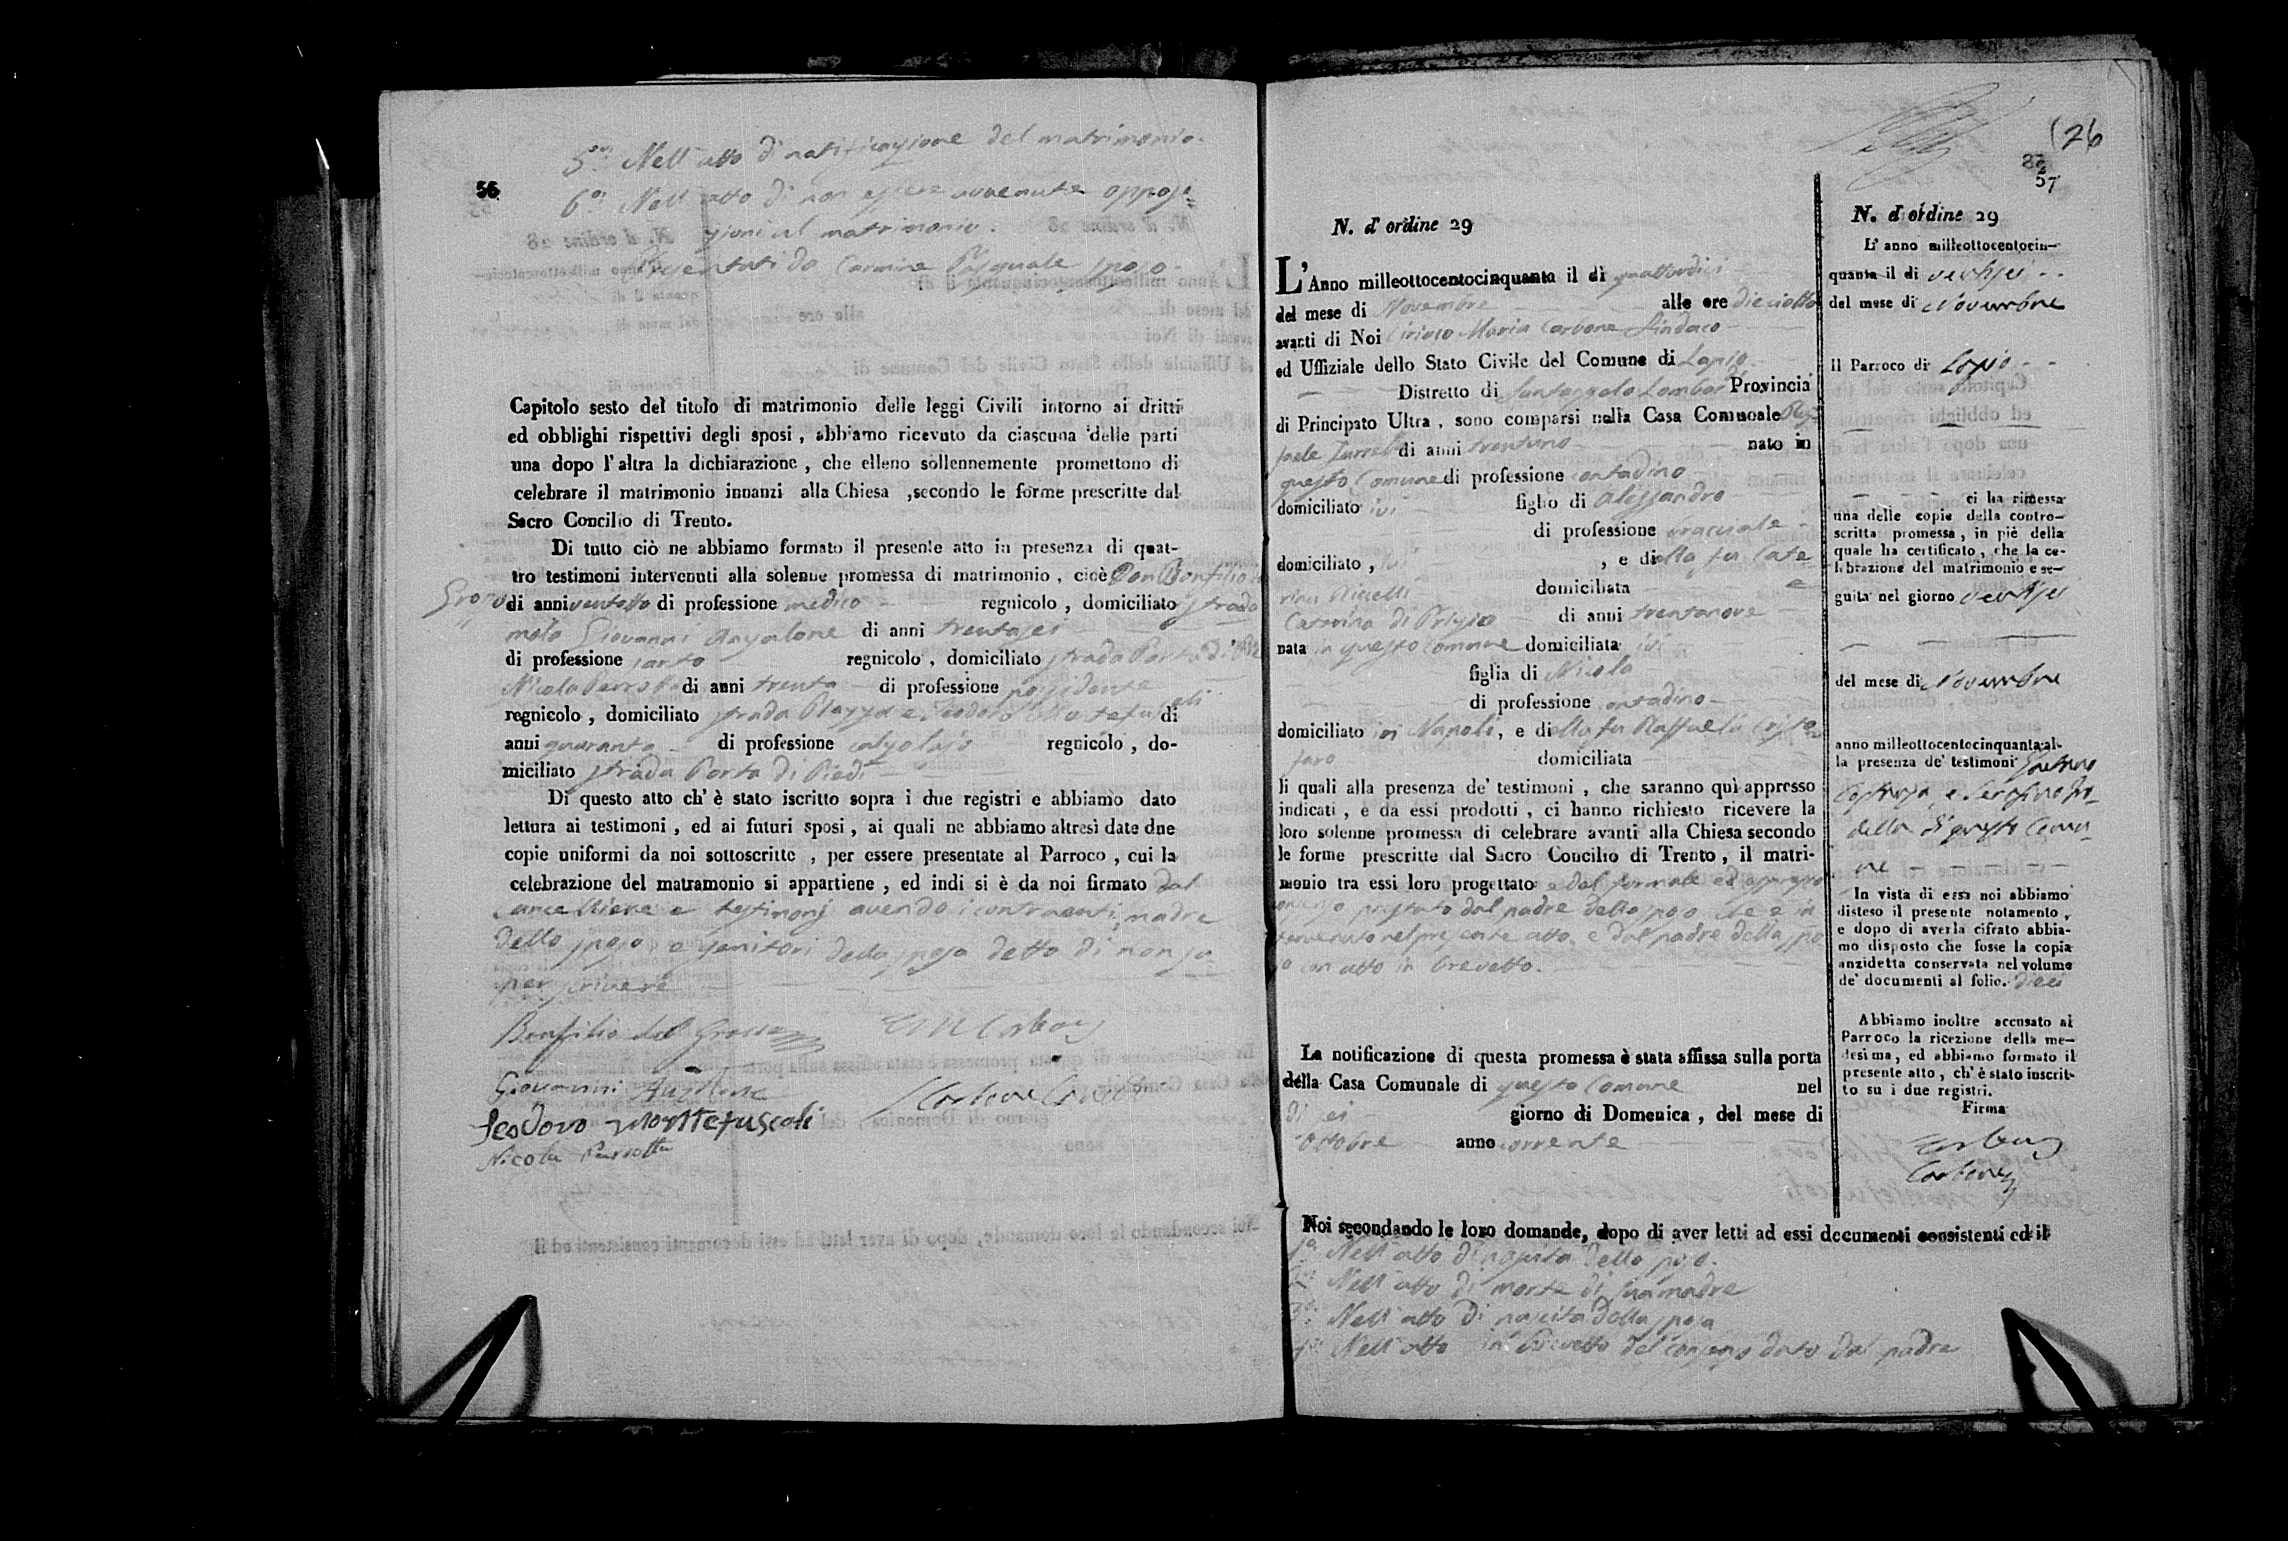 5.° Nell'atto di notificazione del matrimonio.
56
6.° Nell'atto di non essere avvenute opposi=
zioni al matrimonio.
Presentati da Carmine Pasquale sposo
Capitolo sesto del titolo di matrimonio delle leggi Civili intorno ai dritti
ed obblighi rispettivi degli sposi , abbiamo ricevuto da ciascuna delle parti
una dopo l'altra la dichiarazione , che elleno sollennemente promettono di
celebrare il matrimonio innanzi alla Chiesa ,secondo le forme prescritte dal
Sacro Concilio di Trento.
Di tutto ciò ne abbiamo formato il presente atto in presenza di quat-
tro testimoni intervenuti alla solenne promessa di matrimonio , cioè Don Bonfilio
di anni ventotto di professione medico regnicolo , domiciliato strada
Giovanni Anzalone di anni trentasei
di professione sarto regnicolo , domiciliato strada Porta di
Nicola di anni trenta di professione possidente
regnicolo , domiciliato strada Piazza e Teodoro Montefuscoli di
anni quaranta di professione calzolajo regnicolo , do-
miciliato strada Porta di Piedi
Di questo atto ch' è stato iscritto sopra i due registri e abbiamo dato
lettura ai testimoni , ed ai futuri sposi , ai quali ne abbiamo altresì date due
copie uniformi da noi sottoscritte , per essere presentate al Parroco , cui la
celebrazione del matramonio si appartiene , ed indi si è da noi firmato dal
Cancelliere e testimonj avendo i contraenti, madre
dello sposo e genitori della sposa detto di non sa
per scrivere
Bonfilio del Grosso
Giovanni Anzalone
Carbone
Teodoro Montefuscoli
Nicola
(26
57
N. d'ordine 29
L'Anno milleottocentocinquanta il dì quattordici
del mese di Novembre alle ore dieciotto
avanti di Noi Ciriaco Maria Carbone Sindaco
ed Uffiziale dello Stato Civile del Comune di Lapio
Distretto di Santangelo Lombardi Provincia
di Principato Ultra , sono comparsi nella Casa Comunale
di anni trentuno nato in
questo Comune di professione contadino
domiciliato ivi figlio di Alessandro
di professione
domiciliato , ivi , e della fu Cate
rina domiciliata
Caterina di di anni trentanove
nata in questo Comune domiciliata ivi
figlia di Nicola
di professione contadino
domiciliato in Napoli, e della fu Raffaela
domiciliata
li quali alla presenza de' testimoni , che saranno quì appresso
indicati , e da essi prodotti , ci hanno richiesto ricevere la
loro solenne promessa di celebrare avanti alla Chiesa secondo
le forme prescritte dal Sacro Concilio di Trento , il matri-
monio tra essi loro progettato e dal formale ed espresso
prestato dal padre dello sposo che è in
tervenuto nel presente atto e dal padre della spo
sa con atto in brevetto.
La notificazione di questa promessa è stata affissa sulla porta
della Casa Comunale di questo Comune nel
dì sei giorno di Domenica , del mese di
Ottobre anno corrente
N. d'ordine 29
L' anno milleottocentocin-
quanta il di ventisei
del mese di Novembre
Il Parroco di Lapio
ci ha rimessa
una delle copie della contro-
scritta promessa , in piè della
quale ha certificato , che la ce-
lebrazione del matrimonio e se-
guita nel giorno ventisei
del mese di Novembre
anno milleottocentocinquanta al-
la presenza de' testimoni
e Serafino
della di questo Comu-
ne
In vista di essa noi abbiamo
disteso il presente notamento ,
e dopo di averla cifrato abbia-
mo disposto che fosse la copia
anzidetta conservata nel volume
de' documenti al folio. dieci
Abbiamo inoltre accusato ai
Parroco la ricezione della me-
desima, ed abbiamo formato il
presente atto , ch' è stato inscrit-
to su i due registri.
Firma
Carbone
Noi secondando le loro domande, dopo di aver letti ad essi documenti consistenti ed il
1.° Nell'atto di nascita dello sposo.
2.° Nell'atto di morte di sua madre
3.° Nell'atto di nascita della sposa
4.° Nell'atto in brevetto del consenso dato dal padre